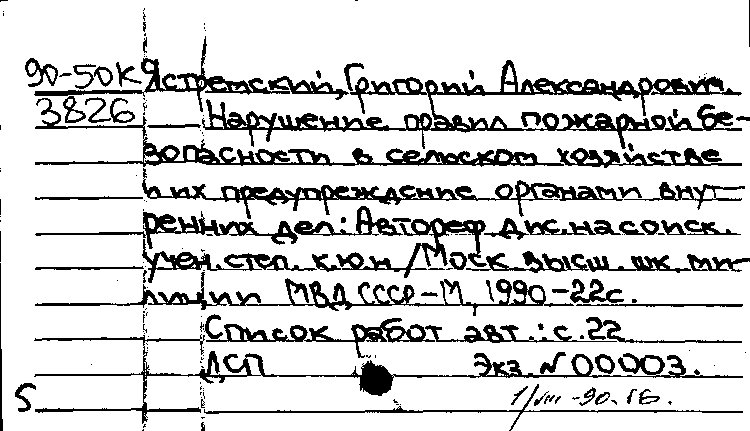 90-50К Ястремский, Григорий Александрович.
3826 Нарушение правил пожарной бе-
зопасности в сельском хозяйстве
и их предупреждение органами внут-
ренних дел: Автореф дис. на соиск.
учен. степ. к.ю.н / Моск высш. шк. ми-
лиции МВД СССР-М, 1990-22с.
Список работ авт.: с. 22
ДСП Экз. N 00003.
5 1/VIII-90.